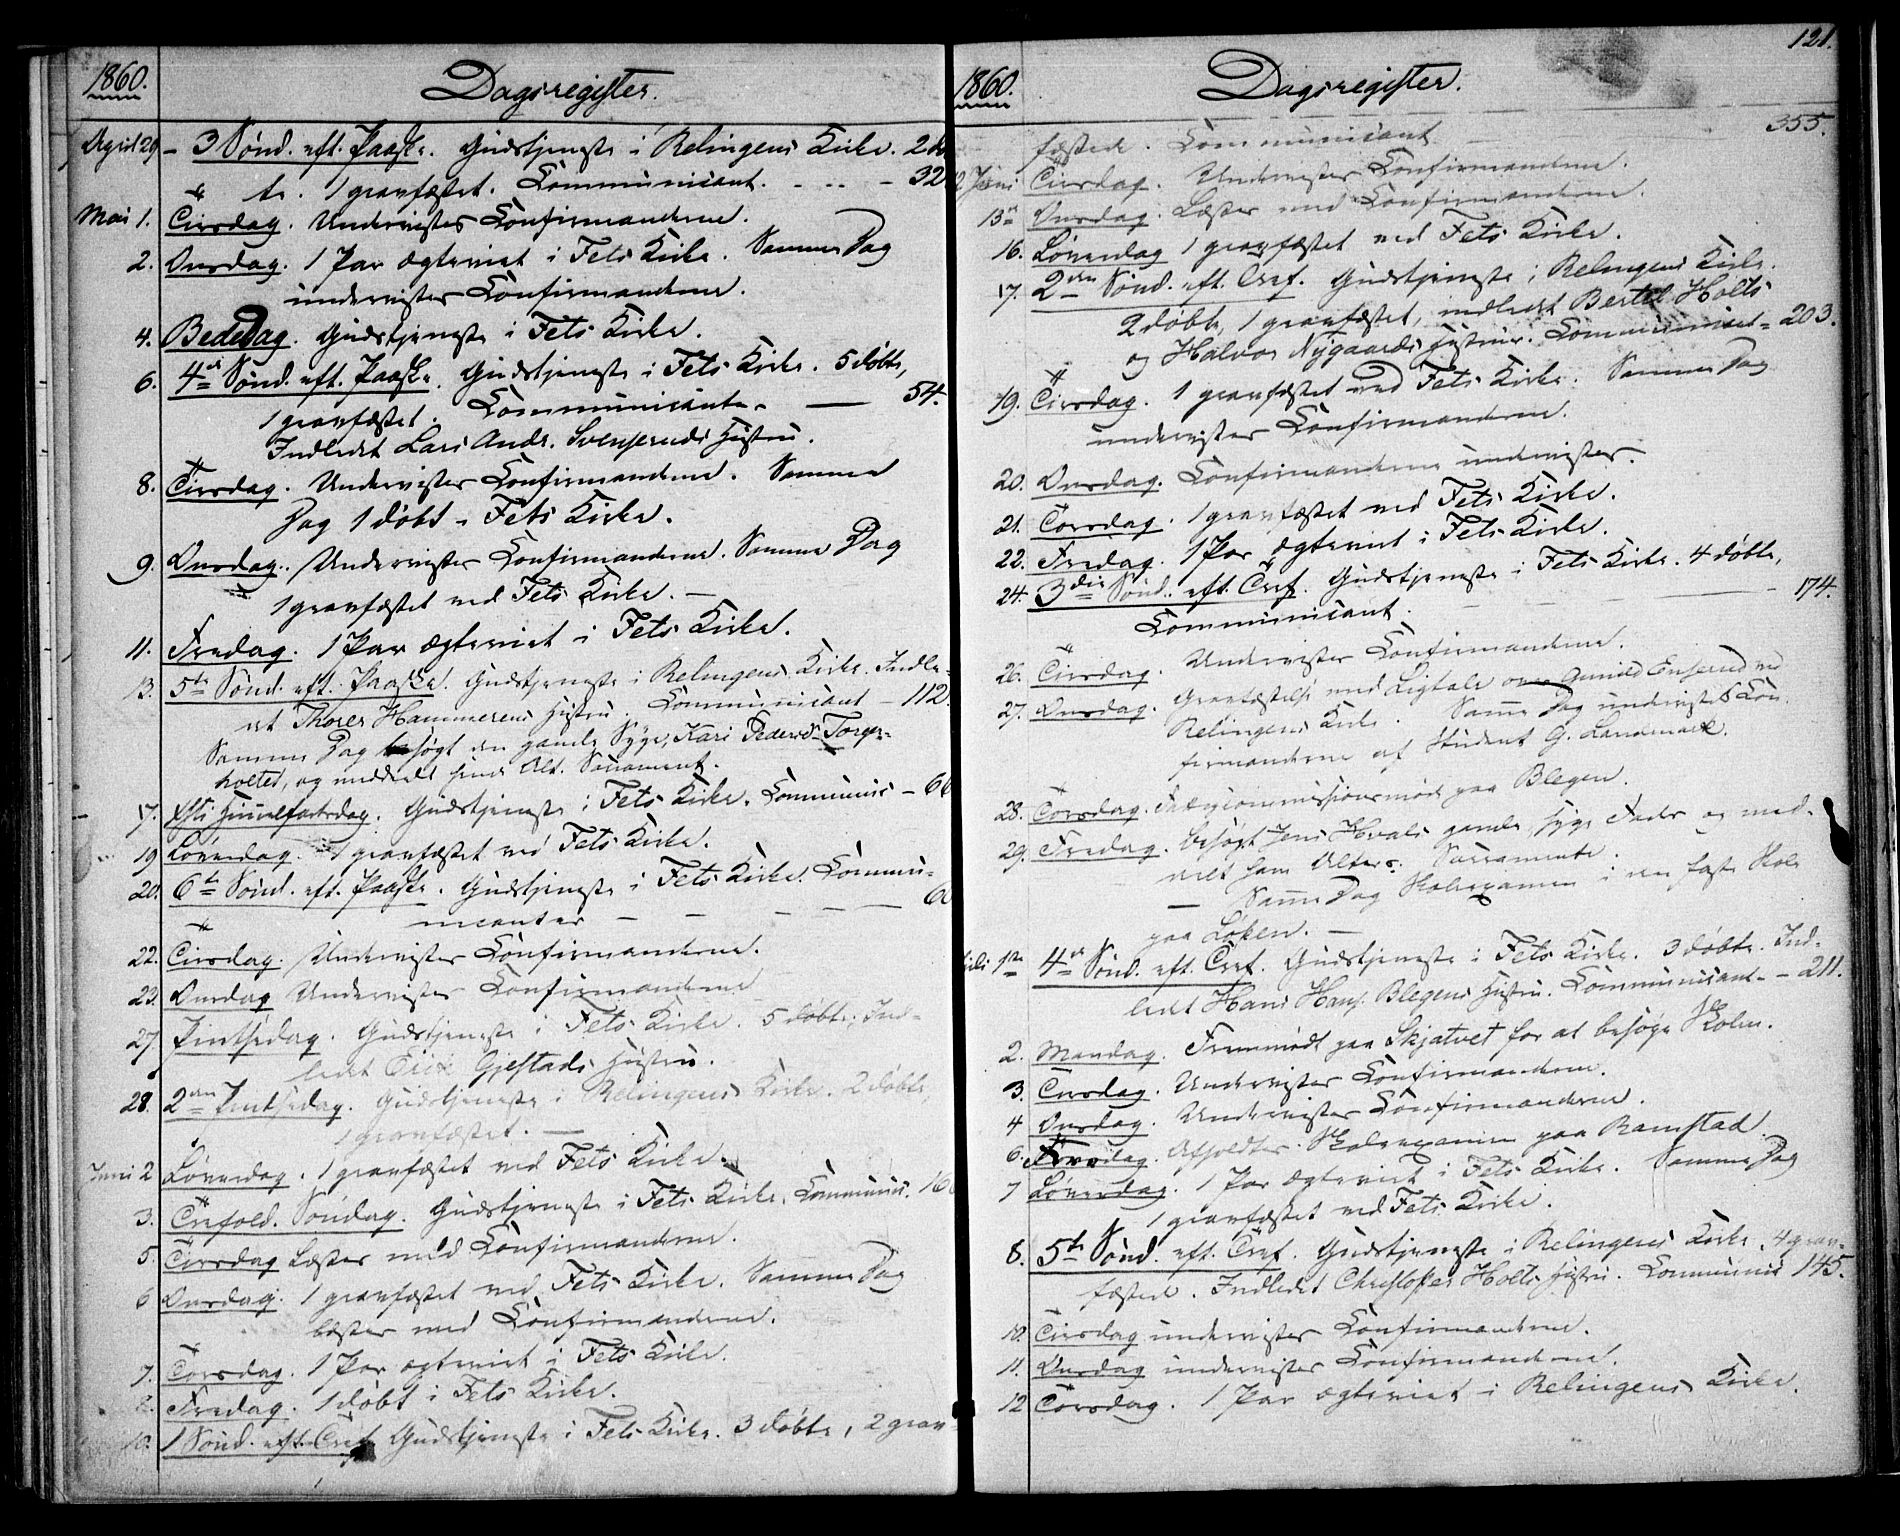 1860.
Dagsregister.
April 29 - 3 Sønd. eft. Paaske. Gudstjeneste i Relingens Kirke. 2 døb
te. 1 gravfæstet. Communicant. - - - 32
Mai 1. Tirsdag. Undervistes Confirmanderne.
2. Onsdag. 1 Par ægteviet i Fets Kirke. Samme Dag
undervistes Confirmanderne.
4. Bededag. Gudstjeneste i Fets Kirke.
6. 4de Sønd. eft. Paaske. Gudstjeneste i Fets Kirke. 5 døbte,
1 gravfæstet. Communicante. — 54.
Indledet Lars Andr. Svenseruds Hustru.
8. Tirsdag. Undervistes Confirmanderne. Samme
Dag 1 døbt i Fets Kirke.
9. Onsdag. Undervistes Confirmanderne. Samme Dag
1 gravfæstet ved Fets Kirke. —
11. Fredag. 1 Par ægteviet i Fets Kirke.
13. 5te Sønd. eft. Paaske. Gudstjeneste i Relingens Kirke. Indle-
det Thores Hammerens Hustru. Communicant - 112.
Samme Dag besøgt den gamle Syge, Kari Pedersd. Torger-
holtet, og meddelt hende Alt. Sacrament.
17. Christi Himmelfartsdag. Gudstjeneste i Fets Kirke. Communic - 66
19 Løverdag. 1 gravfæstet ved Fets Kirke.
20. 6te Sønd. eft. Paaske. Gudstjeneste i Fets Kirke. Commu-
nicanter - - - - — 60
22. Tirsdag. Undervistes Confirmanderne.
23. Onsdag Undervistes Confirmanderne
27. Pintsedag. Gudstjeneste i Fets Kirke. 5 døbte, Ind-
ledet Erik Gjestads Hustru.
28. 2den Pintsedag. Gudstjeneste i Relingens Kirke. 2 døbte,
1 gravfæstet. —
Juni 2 Løverdag. 1 gravfæstet ved Fets Kirke.
3. Trefold. Søndag. Gudstjeneste i Fets Kirke. Communic. 16
5. Tirsdag Læstes med Confirmanderne.
6 Onsdag. 1 gravfæstet ved Fets Kirke. Samme Dag
læstes med Confirmanderne.
7. Torsdag. 1 Par ægteviet i Fets Kirke.
8. Fredag. 1 døbt i Fets Kirke.
10. 1 Sønd. eft. Tref. Gudstjeneste i Fets Kirke. 3 døbte, 2 grav-
121.
1860.
Dagsregister.
fæstede. Communicant — 355.
12 Juni Tirsdag. Undervistes Confirmanderne.
13de Onsdag. Læstes med Confirmanderne.
16. Løverdag 1 gravfæstet ved Fets Kirke.
17. 2den Sønd. eft. Tref. Gudstjeneste i Relingens Kirke.
2 døbte, 1 gravfæstet, indledet Bertel Holts
og Halvor Nygaards Hustruer. Communicant - 203.
19. Tirsdag. 1 gravfæstet ved Fets Kirke. Samme Dag
undervistes Confirmanderne.
20. Onsdag. Confirmanderne undervistes.
21. Torsdag. 1 gravfæstet ved Fets Kirke.
22. Fredag. 1 Par ægteviet i Fets Kirke.
24. 3die Sønd. eft. Tref. Gudstjeneste i Fets Kirke. 4 døbte,
Communicant. — 174.
26. Tirsdag. Undervistes Confirmanderne.
27. Onsdag. Gravfæstelse med Ligtale over Gunild Enserud ved
Relingens Kirke. Samme Dag undervistes Con-
firmanderne af Student G. Landmark.
28. Torsdag. Fattigcommissionsmøde paa Blegen.
29. Fredag. besøgt Jens Hvals gamle, syge Fader og med-
delt ham Alters. Sacramente.
— Samme Dag Skoleexamen i den faste Skole
paa Løken. —
Juli 1ste 4de Sønd. eft. Tref. Gudstjeneste i Fets Kirke. 3 døbte. Ind-
ledet Hans Hans. Blegens Hustru. Communicant - 211.
2. Mandag. Fremmødt paa Skjatvet for at besøge Skolen.
3. Tirsdag. Undervistes Confirmanderne.
4 Onsdag. Undervistes Confirmanderne.
6. Fredag. Afholdtes Skoleexamen paa Ramstad
7 Løverdag. 1 Par ægteviet i Fets Kirke. Samme Dag
1 gravfæstet ved Fets Kirke.
8. 5te Sønd. eft. Tref. Gudstjeneste i Relingens Kirke. 4 grav-
fæstede. Indledet Christopher Holts Hustru. Communic 145.
10. Tirsdag undervistes Confirmanderne.
11. Onsdag undervistes Confirmanderne.
12 Torsdag. 1 Par ægteviet i Relingens Kirke.